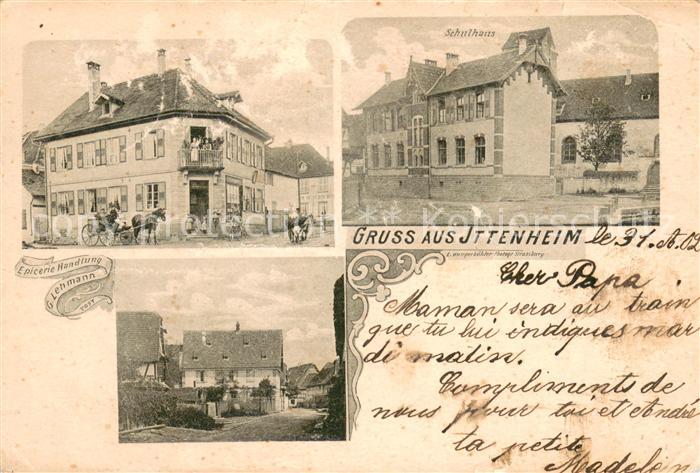 Schulhaus
GRUSS AUS JTTENHEIM le 31. A. 02
Epicerie Handlung
G. Lehmann
POST
Cher Papa.
Maman sera au train
que tu lui indiques mar
di matin.
Compliments de
nous pour toi et André
ta petite
Madelein